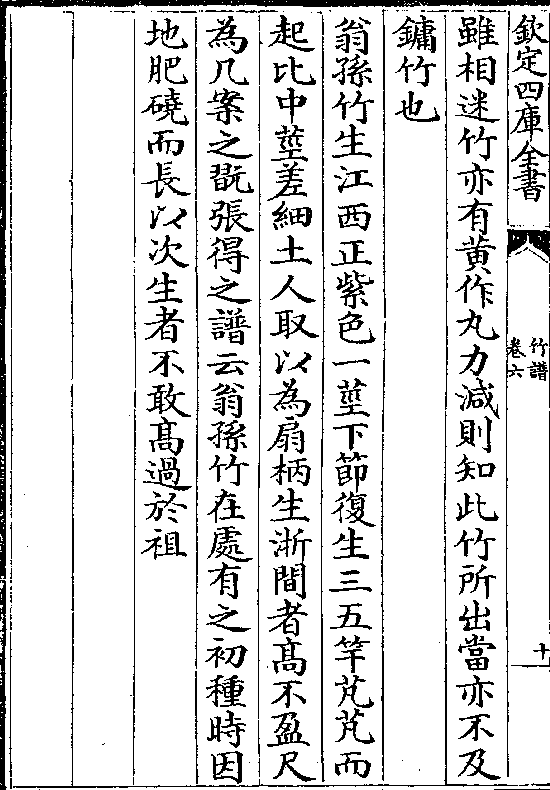 欽定四庫全書
竹譜
卷六
十
雖相迷竹亦有黄作丸力減則知此竹所出當亦不及
鏞竹也
翁孫竹生江西正紫色一莖下節復生三五竿芃芃而
起比中莖差細土人取以為扇柄生浙間者髙不盈尺
為几案之翫張得之譜云翁孫竹在處有之初種時因
地肥磽而長以次生者不敢髙過於祖